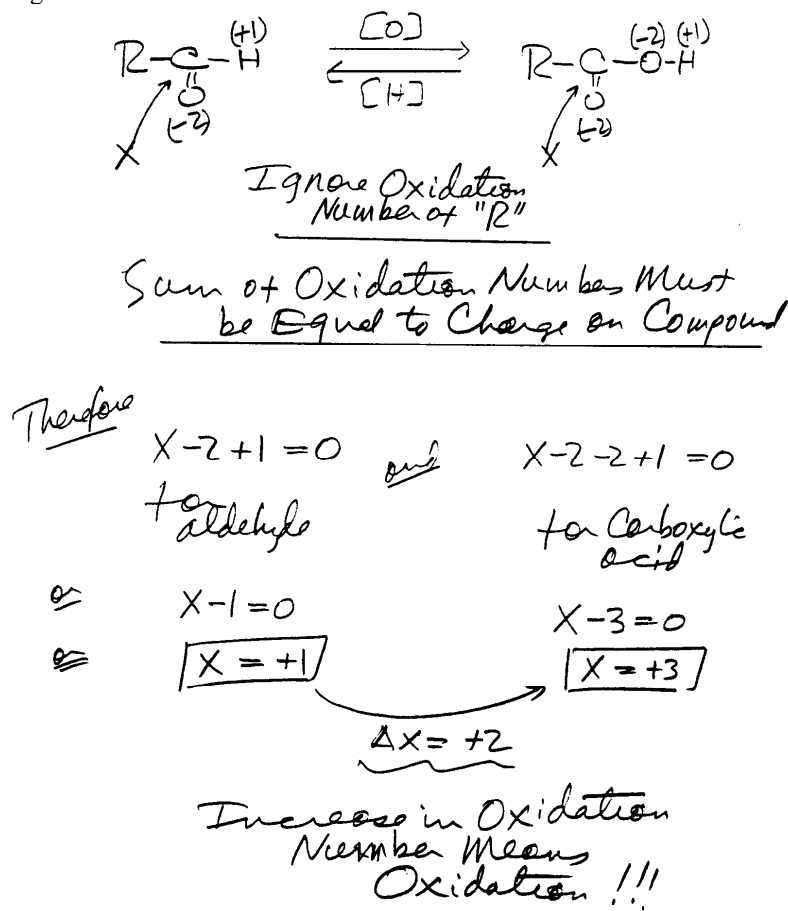 (+1) [O] (-2) (+1)
R-C-H R-C-O-H
O [H] O
(-2) (-2)
X X
Ignore Oxidation
Number of "R"
Sum of Oxidation Numbers Must
be Equal to Charge on Compound
Therefore
X-2+1=0 and X-2-2+1=0
for aldehyde for Carboxylic
acid
or X-1=0 X-3=0
or X=+1 X=+3
ΔX=+2
Increase in Oxidation
Number Means
Oxidation !!!